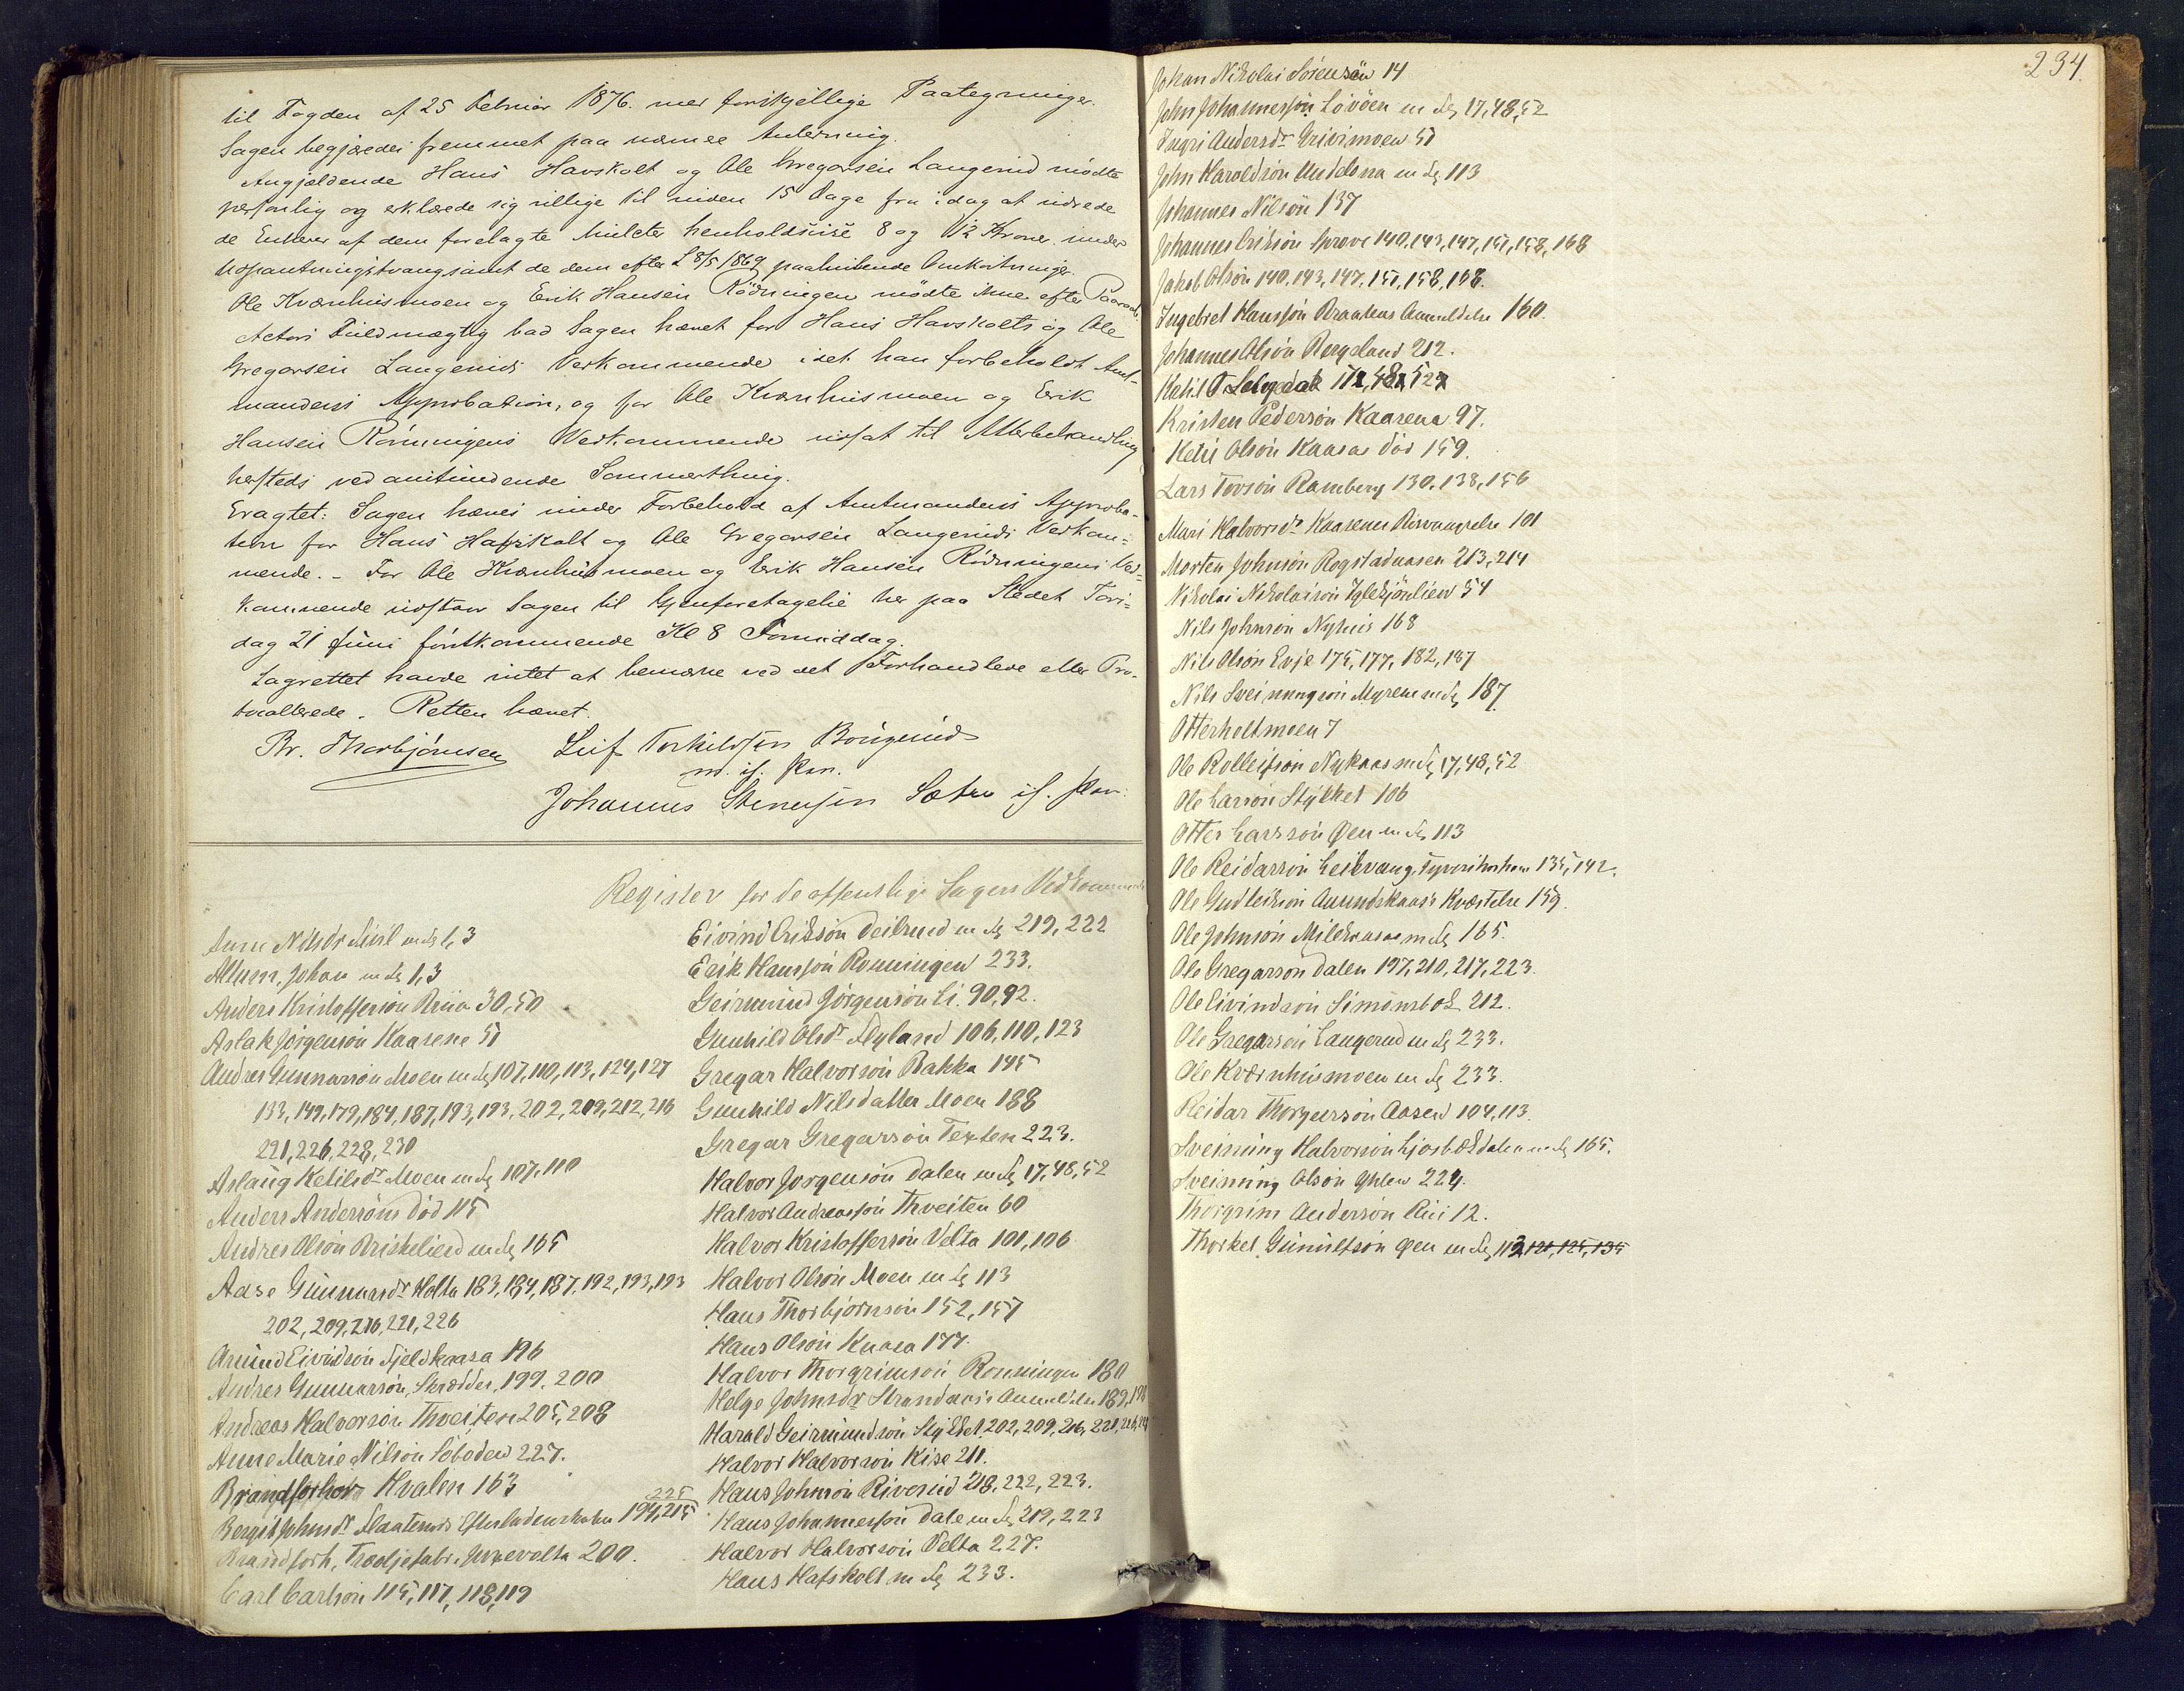 til Fogden af 25 Februar 1876. med forskjellige Paategninger.
Sagen begjæredes fremmet paa nævnee Anledning.
Angjældende Hans Havskolt og Ole Gregarsen Langerud mødte
personlig og erklærede sig villige til inden 15 Dage fra idag at udrede
de Enhver af dem forelagte Mulcter henholdsvise 8 og 12 Kroner under
Udpantningstvang samt de dem efter L 8/5 1869 paahvilende Omkostninger.
Ole Kværnhusmoen og Erik Hansen Rønningen mødte ikke efter Paaraab.
Actors Fuldmægtig bad Sagen hævet for Hans Havskolts og Ole
Gregarsen Langeruds Vedkommende idet han forbeholdt Amt-
mandens Approbation, og for Ole Kværnhusmoen og Erik
Hansen Rønningens Vedkommende udsat til Atterbehandling
hersteds ved anstundende Sommerthing.
Eragtet: Sagen hæves under Forbehold af Amtmandens Approba-
tion for Hans Hafskolt og Ole Gregarsen Langeruds Vedkom-
mende. - For Ole Kværnhusmoen og Erik Hansen Rønningens Ved-
kommende udstaar Sagen til Gjenforetagelse her paa Stedet Tors-
dag 21 Juni førstkommende Kl 8 Formiddag.
Lagrettet havde intet at bemærke ved det Forhandlede eller Pro-
tocollerede. Retten hævet.
Br. Thorbjørnsen Leif Torkildsen Bøugerud
m. if. Pen.
Johannes Stenersen Sæter if. Pen.
Register for de offentlige Sagers Vedkommende
Anne Nilsdr m fl 1, 3
Altum, Johan m fl 1, 3
Anders Kristofferson Riia 30, 50
Aslak Jørgenson Kaasene 51
Andres Gunnarson Moen m fl 107, 110, 113, 124, 127
133, 149, 179, 184, 187, 193, 193, 202, 209, 212, 216
221, 226, 228, 230
Aslaug Ketilsdr Moen m fl 107, 110
Anders Andersøns Død 115
Andres Olson Briskelied m fl 165
Aase Gunnarsdr Holta 183, 184, 187, 192, 193, 193
202, 209, 216, 221, 226
Amund Eivindson Fjeldkaasa 196
Andres Gunnarson, Skrædder, 199, 200
Andreas Halvorson Thveiten 205, 208
Anne Marie Nilson Løboden 227.
Brandforhør Hvalen 163
225
Bergit Johnsdr Flaateruds Efterladenskaber 194, 215
Brandforh. Trædjefabr. 200.
Carl Carlson 115, 117, 118, 119
Eivind Erikson Deilrud m fl 219, 222
Erik Hansson Rønningen 233.
Geirmund Jørgenson Li. 90, 92.
Gunhild Olsdr Flyland 106, 110, 123
Gregar Halvorson Bakka 145
Gunhild Nilsdatter Moen 188
Gregar Gregarson Texten 223.
Halvor Jørgenson Dalen m fl 17, 48, 52
Halvor Andreasson Thveiten 60
Halvor Kristofferson Velta 101, 106
Halvor Olson Moen m fl 113
Hans Thorbjørnson 152, 157
Hans Olson Knaea 177.
Halvor Thorgrimson Rønningen 180
Helge Johnsdr Strandaas's Anmeldelse 189, 190
Harald Geirmundson Stykket 202, 209, 216, 221, 226,
Halvor Halvorson Kise 211.
Hans Johnson Riverud 218, 222, 223.
Hans Johannesson Dale m fl 219, 223
Halvor Halvorson Velta 227.
Hans Hafskolt m fl 233.
234.
Johan Nikolai Sørensøn 14
John Johannesson Løvøen m fl 17, 48, 52
Ingri Andersdr Grivimoen 51
John Haroldson m fl 113
Johannes Nilson 137
Johannes Erikson Sprove 140, 143, 147, 151, 158, 168
Jakob Olson 140, 143, 147, 151, 158, 168.
Ingebret Hansson Braatens Anmeldelse 160.
Johannes Olson Bergeland 212.
Ketil T Selgedal 17, 48, 52
Kristen Pederson Kaasena 97.
Ketil Olson Kaasas Død 159.
Lars Torson Ramberg 130, 138, 156
Mari Halvorsdr Kaasenes Besvangrelse 101
Morten Johnson Rogstadaasen 213, 214
Nikolai Nikolaison Igletjönlien 54
Nils Johnson Nyhus 168
Nils Olson Evje 175, 177, 182, 187
Nils Sveinungson Myrene m fl 187
Otterholtmoen 7
Ole Rolleifson Nykaas m fl 17, 48, 52
Ole Larson Stykket 106
Otter Larsson Øen m fl 113
Ole Reidarson Leikvang, Tyveriforhør 135, 142.
Ole Gudleikson Aamundskaas's Kvæstelse 159.
Ole Johnson Mildraasas m fl 165.
Ole Gregarson Dalen 197, 210, 217, 223.
Ole Eivindson Simonsbøk 212.
Ole Gregarson Langerud m fl 233.
Ole Kværnhusmoen m fl 233.
Reidar Thorgersøn Aasen 104, 113.
Sveinung Halvorson Ljosbækdalen m fl 165.
Sveinung Olson 224.
Thorgrim Anderson Riis 12.
Thorkel Gunulfson Øen m fl 113 121, 125, 135